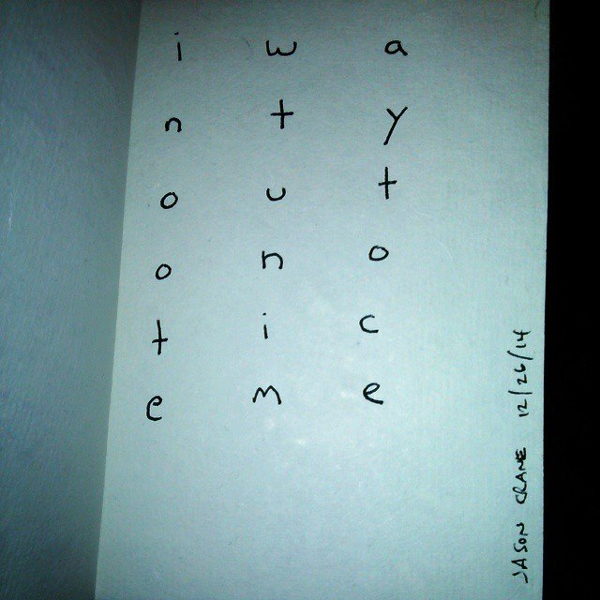 i w a
n t y
o u t
o n o
t i c
e m e
JASON CRANE 12/26/14